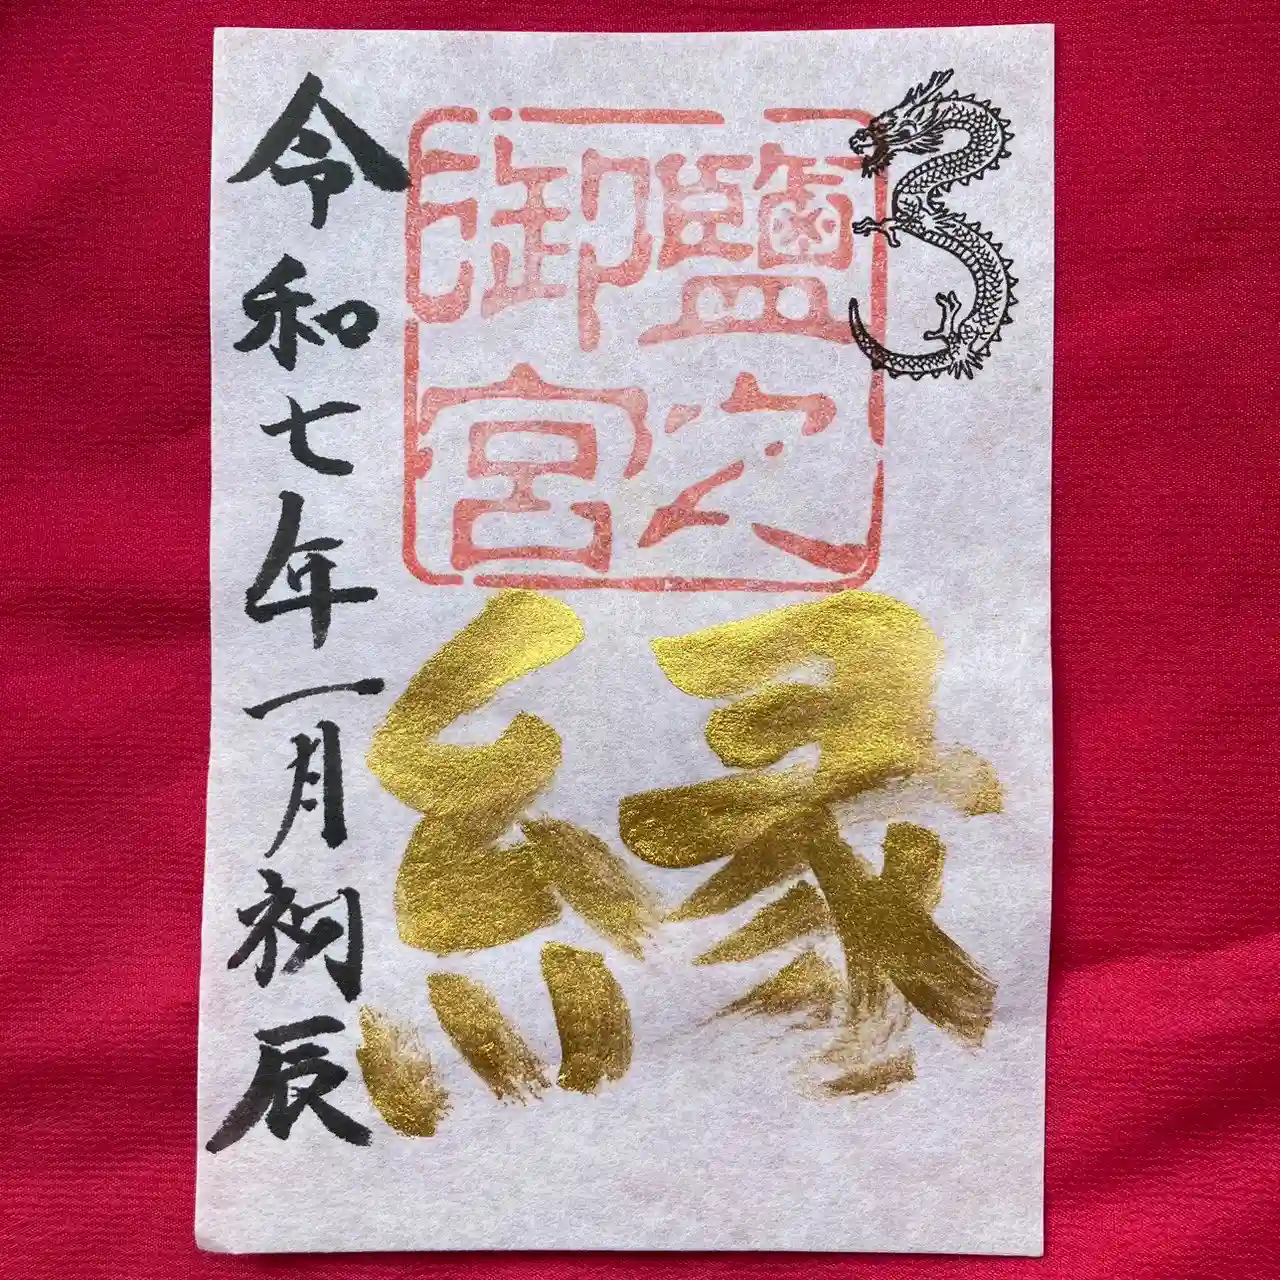 鹽之
御宮
縁
令和七年一月初辰